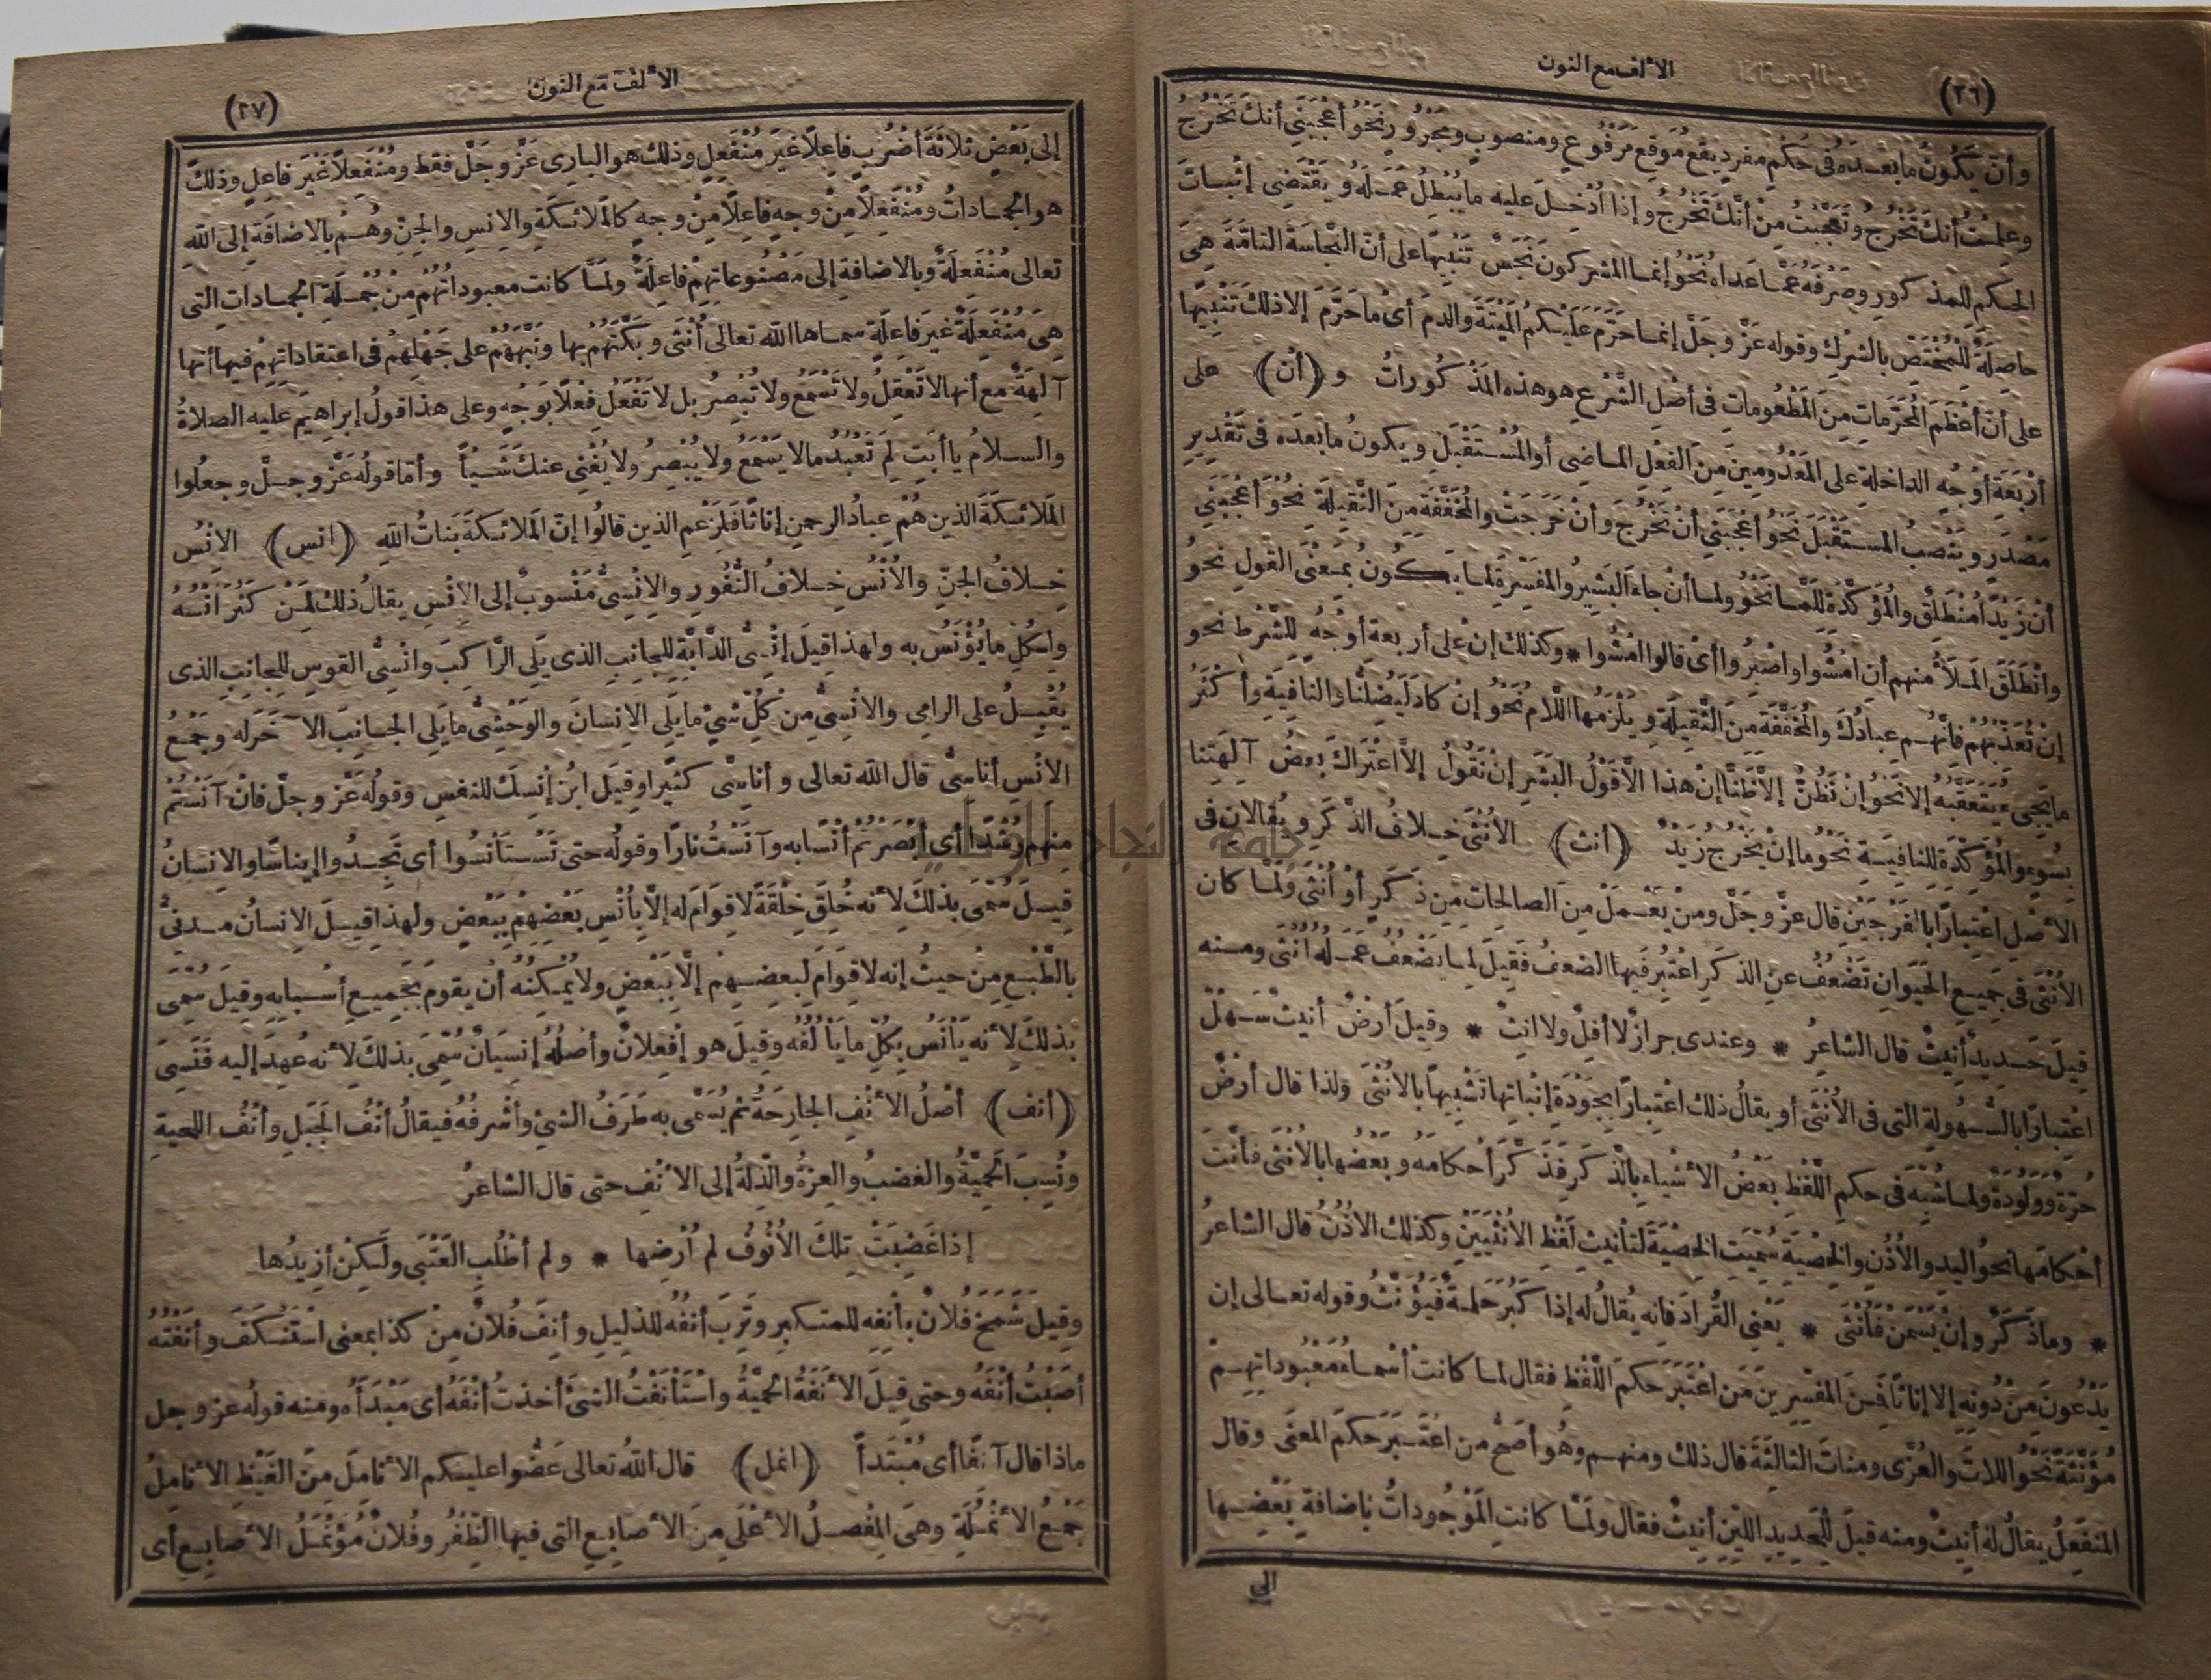 (٢٦)
الألف مع النون
وأنّ يَكُونُ ما بعدَه فى حُكْمِ مفردٍ يقع مَوقِع مَرْفُوعٍ ومنصوبٍ ومجرورٍ نحْو أعْجَبَنِى أنّكَ تَخْرُجُ
وعلِمْتُ أنّكَ تَخْرُجُ وتَعَجَّبْتُ مِنْ أنّكَ تَخْرُجُ وإذا أُدْخِلَ عليه ما يُبْطِلُ عَمَلَهُ ويَقْتَضِى إثْباتَ
الحكم للمذكورِ وصَرْفَهُ عَمَّا عَداهُ نَحْوُ إنما المشركون نَجَسٌ تَنْبِيهًا على أنّ النَّجاسَةَ التامَّةَ هِىَ
حاصِلَةٌ للمُخْتَصّ بالشرْكِ وقوله عَزَّ وجَلَّ إنما حَرَّمَ عَلَيْكم المَيْتَةَ والدمَ أىْ ما حَرَّمَ إلا ذلك تَنْبِيهًا
على أنّ أعْظَمَ المُحَرَّمَاتِ مِنَ المَطْعُوماتِ فى أصْلِ الشَّرْعِ هو هذه المَذْكُوراتُ و (أنْ) على
أرْبَعَةِ أوْجُهٍ الداخلةِ على المَعْدُومِينَ مِنَ الفِعْلِ الماضى أو المُسْتَقْبَلِ ويكونُ ما بعدَه فى تَقْدِيرِ
مَصْدَرٍ ويَنْصِبُ المستَقْبَلَ نَحْوُ أعْجَبَنِى أنْ تَخْرُجَ وأنْ خَرَجْتَ والمُخَفَّفَةِ مِنَ الثَّقِيلَةِ نحْوُ أعْجَبَنِى
أنْ زَيْدًا مُنْطَلِقٌ والمُؤَكِّدَةِ لِلَمَّا نَحْوُ ولما أنْ جاءَ البَشِيرُ والمفَسِّرَةِ لما يكُونُ بمعْنَى القولِ نحوُ
وانْطَلَقَ المَلأُ منهم أنِ امْشُوا واصْبِرُوا أىْ قالوا امْشُوا * وكذلك إنْ على أربعة أوْجُهٍ للشرطِ نحو
إنْ تُعَذِّبْهُمْ فانَّهُمْ عِبادُكَ والمُخَفَّفَةِ منَ الثَّقِيلَةِ ويَلْزَمُها اللّامُ نَحْوُ إنْ كادَ لَيُضِلُّنَا والنافيةِ وأكْثَرُ
ما يَجِىءُ يَتَعَقَّبُهُ إلا نَحْوُ إنْ نَظُنُّ إلاّ ظَنًّا إنْ هذا إلاّ قَوْلُ البَشَرِ إنْ نَقُولُ إلاّ اعْتَراكَ بعضُ آلِهَتِنا
بِسُوءٍ والمُؤَكِّدَةِ للنافيةِ نَحْوُ ما إنْ يَخْرُجُ زَيْدٌ (أنث) الأُنْثَى خِلافُ الذَّكَرِ ويُقالانِ فى
الأصْلِ اعْتِبارًا بالفَرْجَيْنِ قال عزّ وجَلّ ومنْ يَعْمَلْ مِنَ الصالحاتِ مِن ذَكَرٍ أوْ أُنْثَى ولَمَّا كان
الأُنْثَى فى جَمِيعِ الحَيَوانِ تَضْعُفُ عنِ الذكَرِ اعْتُبِرَ فيها الضعفُ فقيلَ لما يَضْعُفُ عَمَلُهُ أُنْثَى ومنه
قِيلَ حَدِيدٌ أنِيثٌ قال الشاعرُ * وعندى جرازٌ لا أفلٌ ولا انِثْ * وقِيلَ أرضٌ أنيثٌ سَهْلٌ
اعْتِبارًا بالسُّهُولةِ التى فى الأُنْثَى أو يقالُ ذلك اعْتِبارًا بجَوْدَةِ إنْباتِها تَشْبِيهًا بالأُنْثَى ولذا قال أرضٌ
حُرّةٌ ووَلُودَةٌ ولما شُبِّهَ فى حكمِ اللَّفْظِ بَعْضُ الأشْياءِ بالذَّكَرِ فذَكَّرَ أحكامَهُ وبَعْضُها بالأُنْثَى فأنَّثَ
أحْكامَها نحوُ اليدِ والأُذُنِ والخُصْيَةِ سُمِّيَتِ الخُصْيَةُ لتأنيثِ لَفْظِ الأُنْثَيَيْنِ وكذلك الأُذُنُ قال الشاعرُ
* وما ذَكَرٌ وإنْ يَسْمَنْ فَأُنْثَى * يَعْنِى القُرادَ فانه يُقالُ له إذا كَبُرَ حَلَمةٌ فَيُؤَنَّثُ وقوله تعالى إن
يَدْعُونَ مِنْ دُونِهِ إلا إناثًا فَمِنَ المفَسِّرِينَ مَنِ اعْتَبَرَ حكمَ اللَّفْظِ فقال لما كانتْ أسْماءُ مَعْبُوداتِهِمْ
مُؤَنَّثَةً نَحْوُ اللاتَ والعُزَّى ومناتَ الثالثةَ قال ذلك ومنهم وهُو أصَحُّ منِ اعْتَبَرَ حكمَ المعنَى وقال
المنْفَعِلُ يقالُ لهُ أنِيثٌ ومنه قيلَ للْحَديدِ اللّيِّنِ أنِيثٌ فقال ولَمَّا كانتِ المَوْجُوداتُ باضافةِ بَعْضِها
الى
(٢٧)
الألف مع النون
إلى بَعْضٍ ثلاثَةَ أضْرُبٍ فاعِلاً غيرَ مُنْفَعِلٍ وذلك هو البارِى عَزَّ وجَلَّ فقط ومُنْفَعِلاً غَيْرَ فاعِلٍ وذلك
هو الجماداتُ ومُنْفَعِلاً مِنْ وجهٍ فاعِلاً مِنْ وجهٍ كالمَلائكَةِ والانسِ والجنِّ وهُمْ بالاضافَةِ إلى اللهِ
تعالى مُنْفَعِلَةٌ وبالاضافةِ إلى مَصْنُوعاتِهِمْ فاعِلَةٌ ولَمَّا كانت معبوداتُهُمْ مِنْ جُمْلَةِ الجماداتِ التى
هِىَ مُنْفَعِلَةٌ غيرُ فاعِلَةٍ سماها الله تعالى أُنْثَى وبَكَّتَهُمْ بها ونَبَّهَهُمْ على جَهْلِهِمْ فى اعتقاداتِهِمْ فيها أنها
آلِهَةٌ مع أنها لا تَعْقِلُ ولا تَسْمَعُ ولا تُبْصِرُ بل لا تَفْعَلُ فِعْلاً بوَجْهٍ وعلى هذا قولُ إبراهيمَ عليه الصلاةُ
والسلامُ يا أبَتِ لِمَ تَعْبُدُ مالا يَسْمَعُ ولا يُبْصِرُ ولا يُغْنِى عنكَ شَيْأً وأمّا قولُه عَزّ وجلّ وجعلُوا
المَلائكَةَ الذين هُمْ عِبادُ الرحمنِ إناثًا فَلِزَعْمِ الذين قالُوا إنّ المَلائكَةَ بَناتُ اللهِ (انس) الانْسُ
خِلافُ الجنِّ والأُنْسُ خِلافُ النُّفُورِ والانْسِىُّ مَنْسُوبٌ إلى الانْسِ يقالُ ذلك لمَنْ كَثُرَ أُنْسُهُ
ولكُلِّ ما يُؤْنَسُ به ولهذا قيلَ إنْسِىُّ الدّابَّةِ للجانبِ الذى يَلِى الرَّاكِبَ وانْسِىُّ القوسِ للجانِبِ الذى
يُقْبِلُ على الرامِى والانْسِىُّ مِن كُلِّ شىْءٍ ما يَلِى الانسانَ والوَحْشِىُّ ما يَلِى الجانبَ الآخَرَ له وجَمْعُ
الانْسِ أناسِىُّ قال الله تعالى وأناسِىَّ كثيرًا وقيلَ ابنُ إنْسِكَ للنفسِ وقولُه عَزّ وجلّ فانْ آنَسْتُمْ
مِنهم رُشْدًا أى أبْصَرْتُمْ أُنْسًا به وآنَسْتُ نارًا وقولُه حتى تَسْتَأْنِسُوا أى تَجِدُوا إيناسًا والانسانُ
قيلَ سُمِّىَ بذلكَ لأنه خُلِقَ خِلْقَةً لا قِوامَ له إلاّ بأُنْسِ بَعْضِهِمْ بِبَعْضٍ ولهذا قِيلَ الانسانُ مدنىٌّ
بالطَّبْعِ مِنْ حيثُ إنه لا قِوامَ لبعضِهِمْ إلّا ببَعْضٍ ولا يُمْكِنُهُ أنْ يقومَ بجَمِيعِ أسْبابِهِ وقيلَ سُمِّىَ
بذلكَ لأنه يَأْنَسُ بِكُلِّ ما يَأْلَفُهُ وقيلَ هو إفْعِلانٌ وأصْلُهُ إنْسِيانٌ سُمِّىَ بذلكَ لأنه عُهِدَ إليه فَنَسِىَ
(أنف) أصْلُ الأنْفِ الجارِحَةُ ثم يُسَمَّى به طَرَفُ الشىْءِ وأشْرفُهُ فيقالُ أنْفُ الجَبَلِ وأنْفُ اللحيةِ
ونُسِبَ الحَمِيَّةُ والغضبُ والعِزةُ والذِلةُ إلى الأنْفِ حتى قال الشاعرُ
إذا غَضِبَتْ تِلكَ الأُنُوفُ لم اُرْضِها * ولم أطْلُبِ العُتْبَى ولَكِنْ أزِيدُها
وقيلَ شَمَخَ فُلانٌ بأنْفِه للمتكبرِ وتَرِبَ أنْفُهُ للذليلِ وأنِفَ فُلانٌ مِنْ كذا بمعنى اسْتَنْكَفَ وأنَفْتُهُ
أصَبْتُ أنْفَهُ وحتى قِيلَ الأنَفَةُ الحَمِيَّةُ واسْتَأْنَفْتُ الشىْءَ أخذتُ أنْفَهُ أى مَبْدَأَهُ ومنه قولُه عز وجل
ماذا قال آنِفًا أى مُبْتَدأً (انمل) قال اللهُ تعالى عَضُّوا عليكم الأنامِلَ منَ الغَيْظِ الأنامِلُ
جَمْعُ الأنْمُلَةِ وهىَ المِفْصلُ الأعْلَى مِنَ الأصابِعِ التى فيها الظُّفُرُ وفُلانٌ مُؤَنْمَلُ الأصابِعِ أى